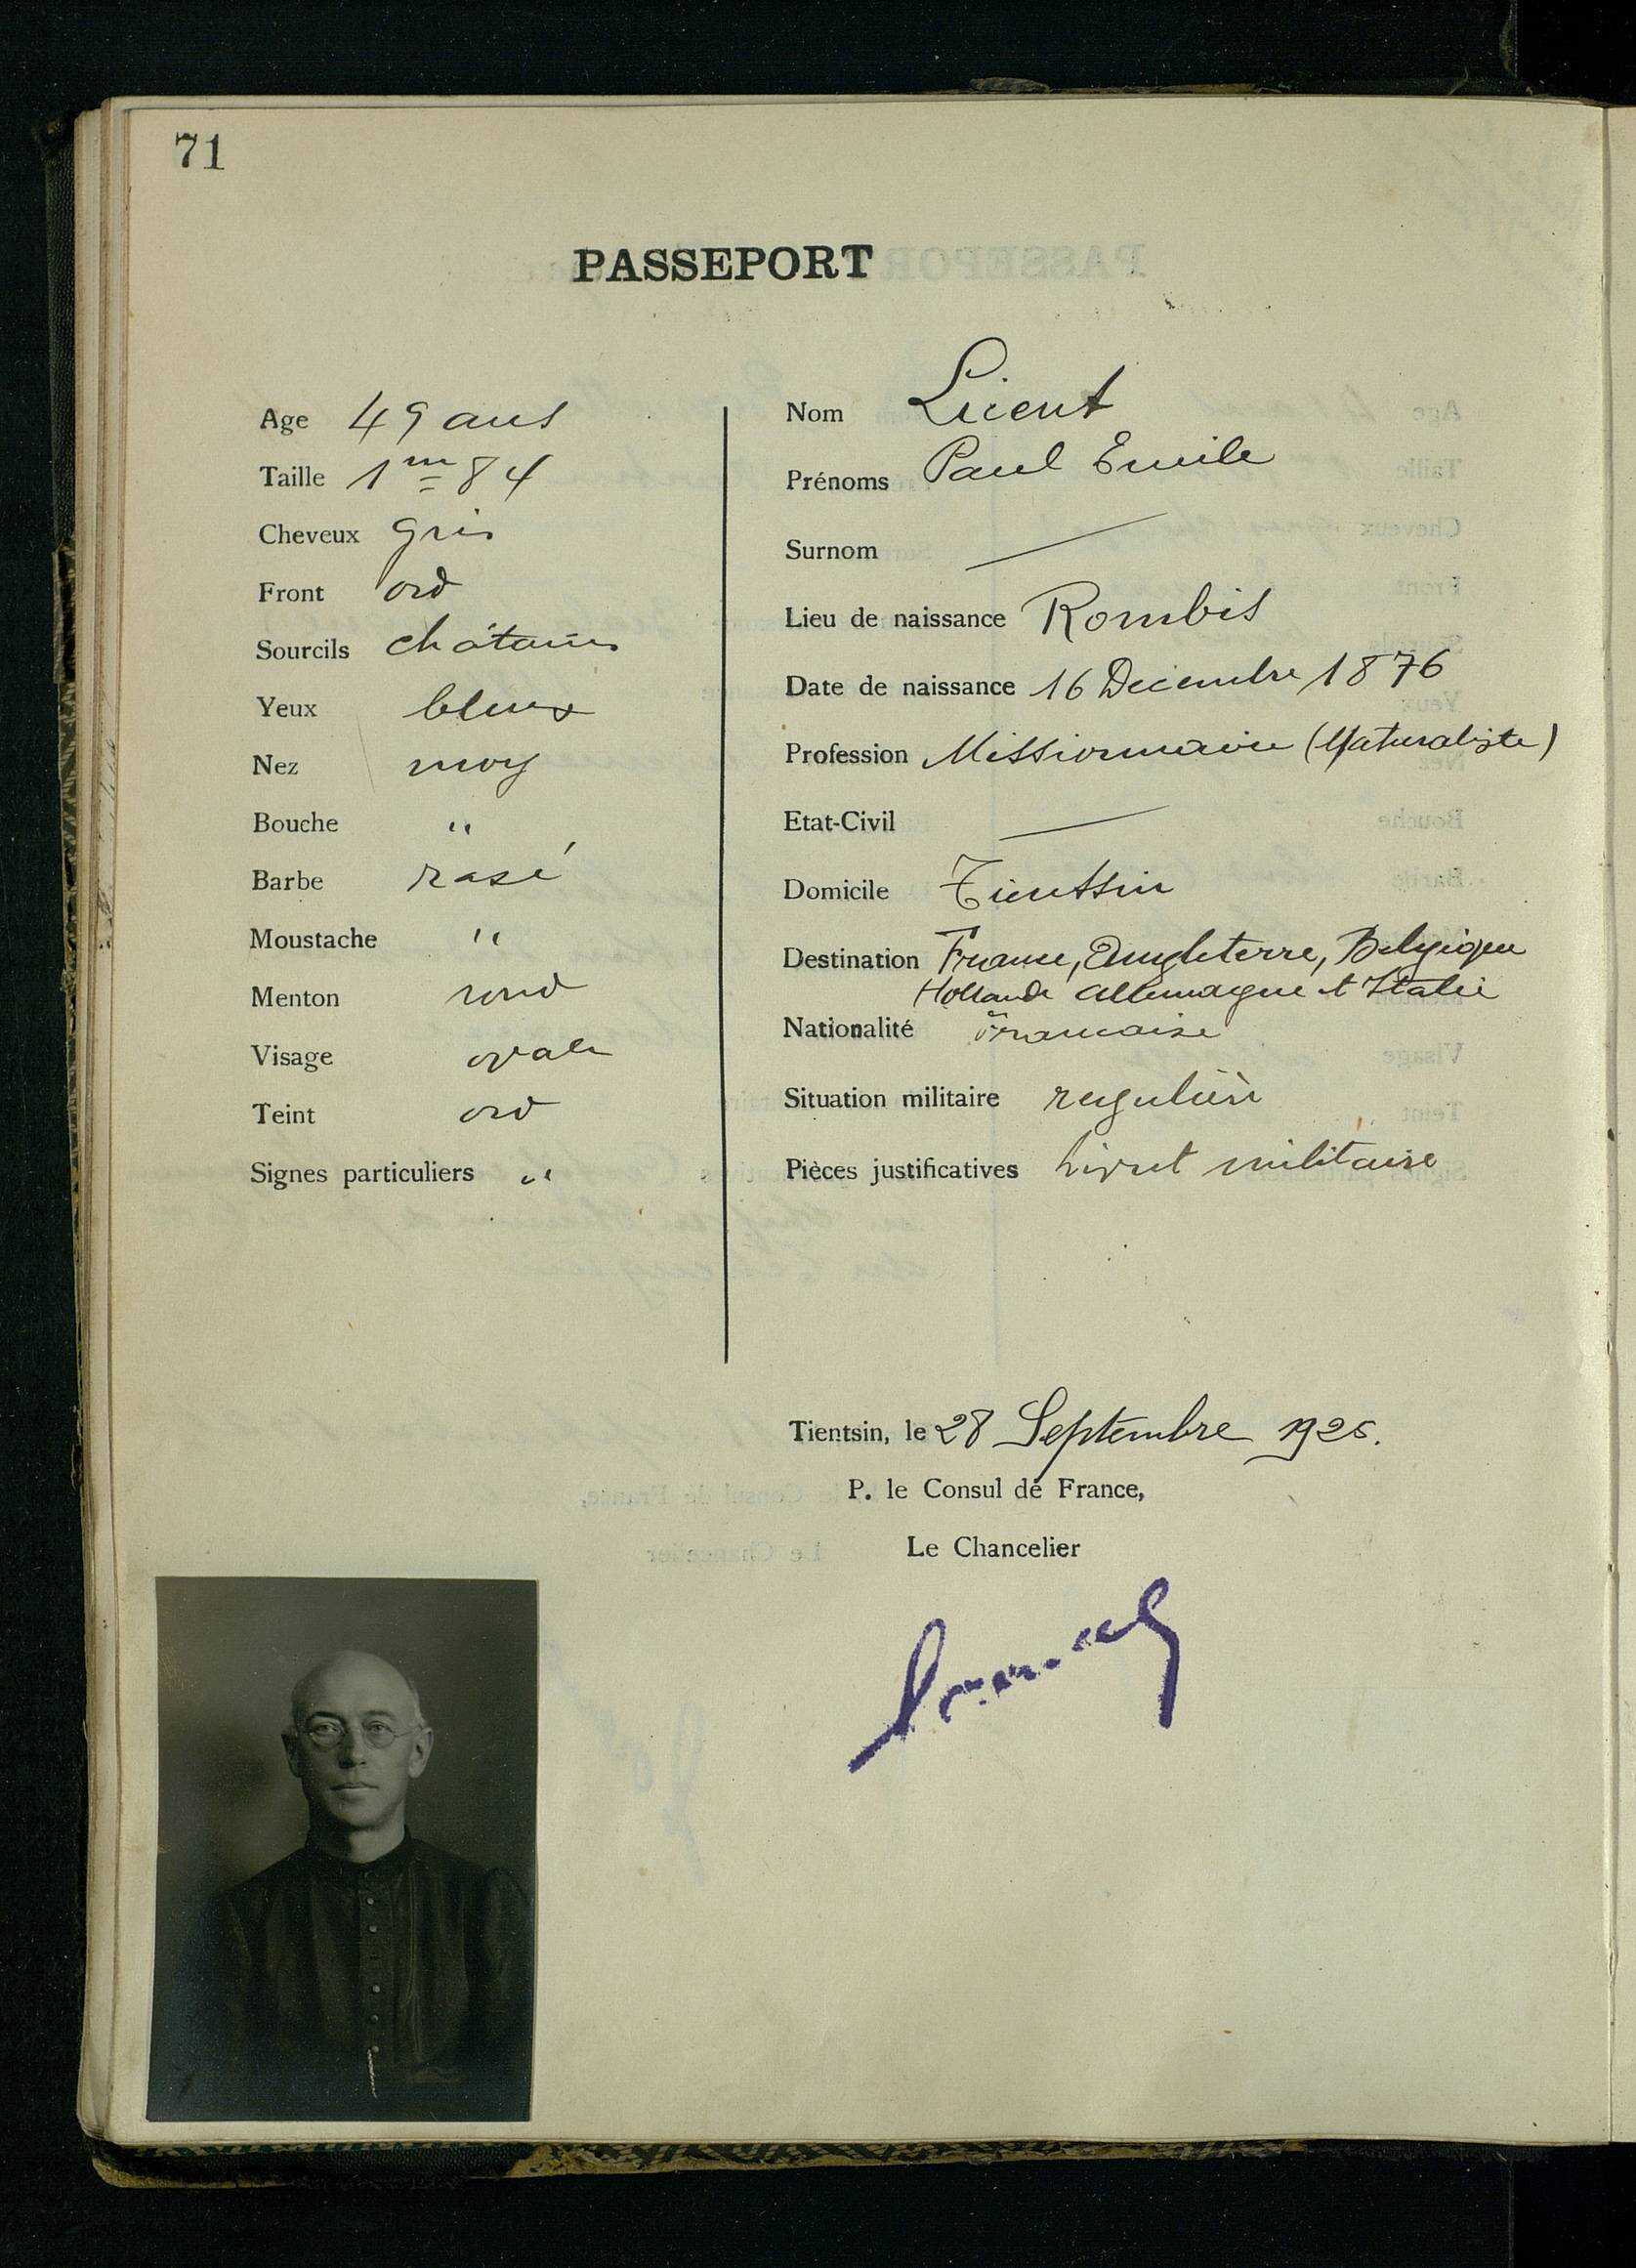 71
PASSEPORT
Age 49 ans
Taille 1m 84
Cheveux gris
Front ord
Sourcils châtains
Yeux bleus
Nez moy
Bouche "
Barbe rasé
Moustache "
Menton rond
Visage ovale
Teint ord
Signes particuliers "
Nom Licent
Prénoms Paul Emile
Surnom —
Lieu de naissance Rombis
Date de naissance 16 Decembre 1876
Profession Missionnaire (Naturaliste)
Etat-Civil —
Domicile Tientsin
Destination France, Angleterre, Belgique
Hollande Allemagne et Italie
Nationalité Francaise
Situation militaire regulière
Pièces justificatives Livret militaire
Tientsin, le 28 Septembre 1925.
P. le Consul de France,
Le Chancelier